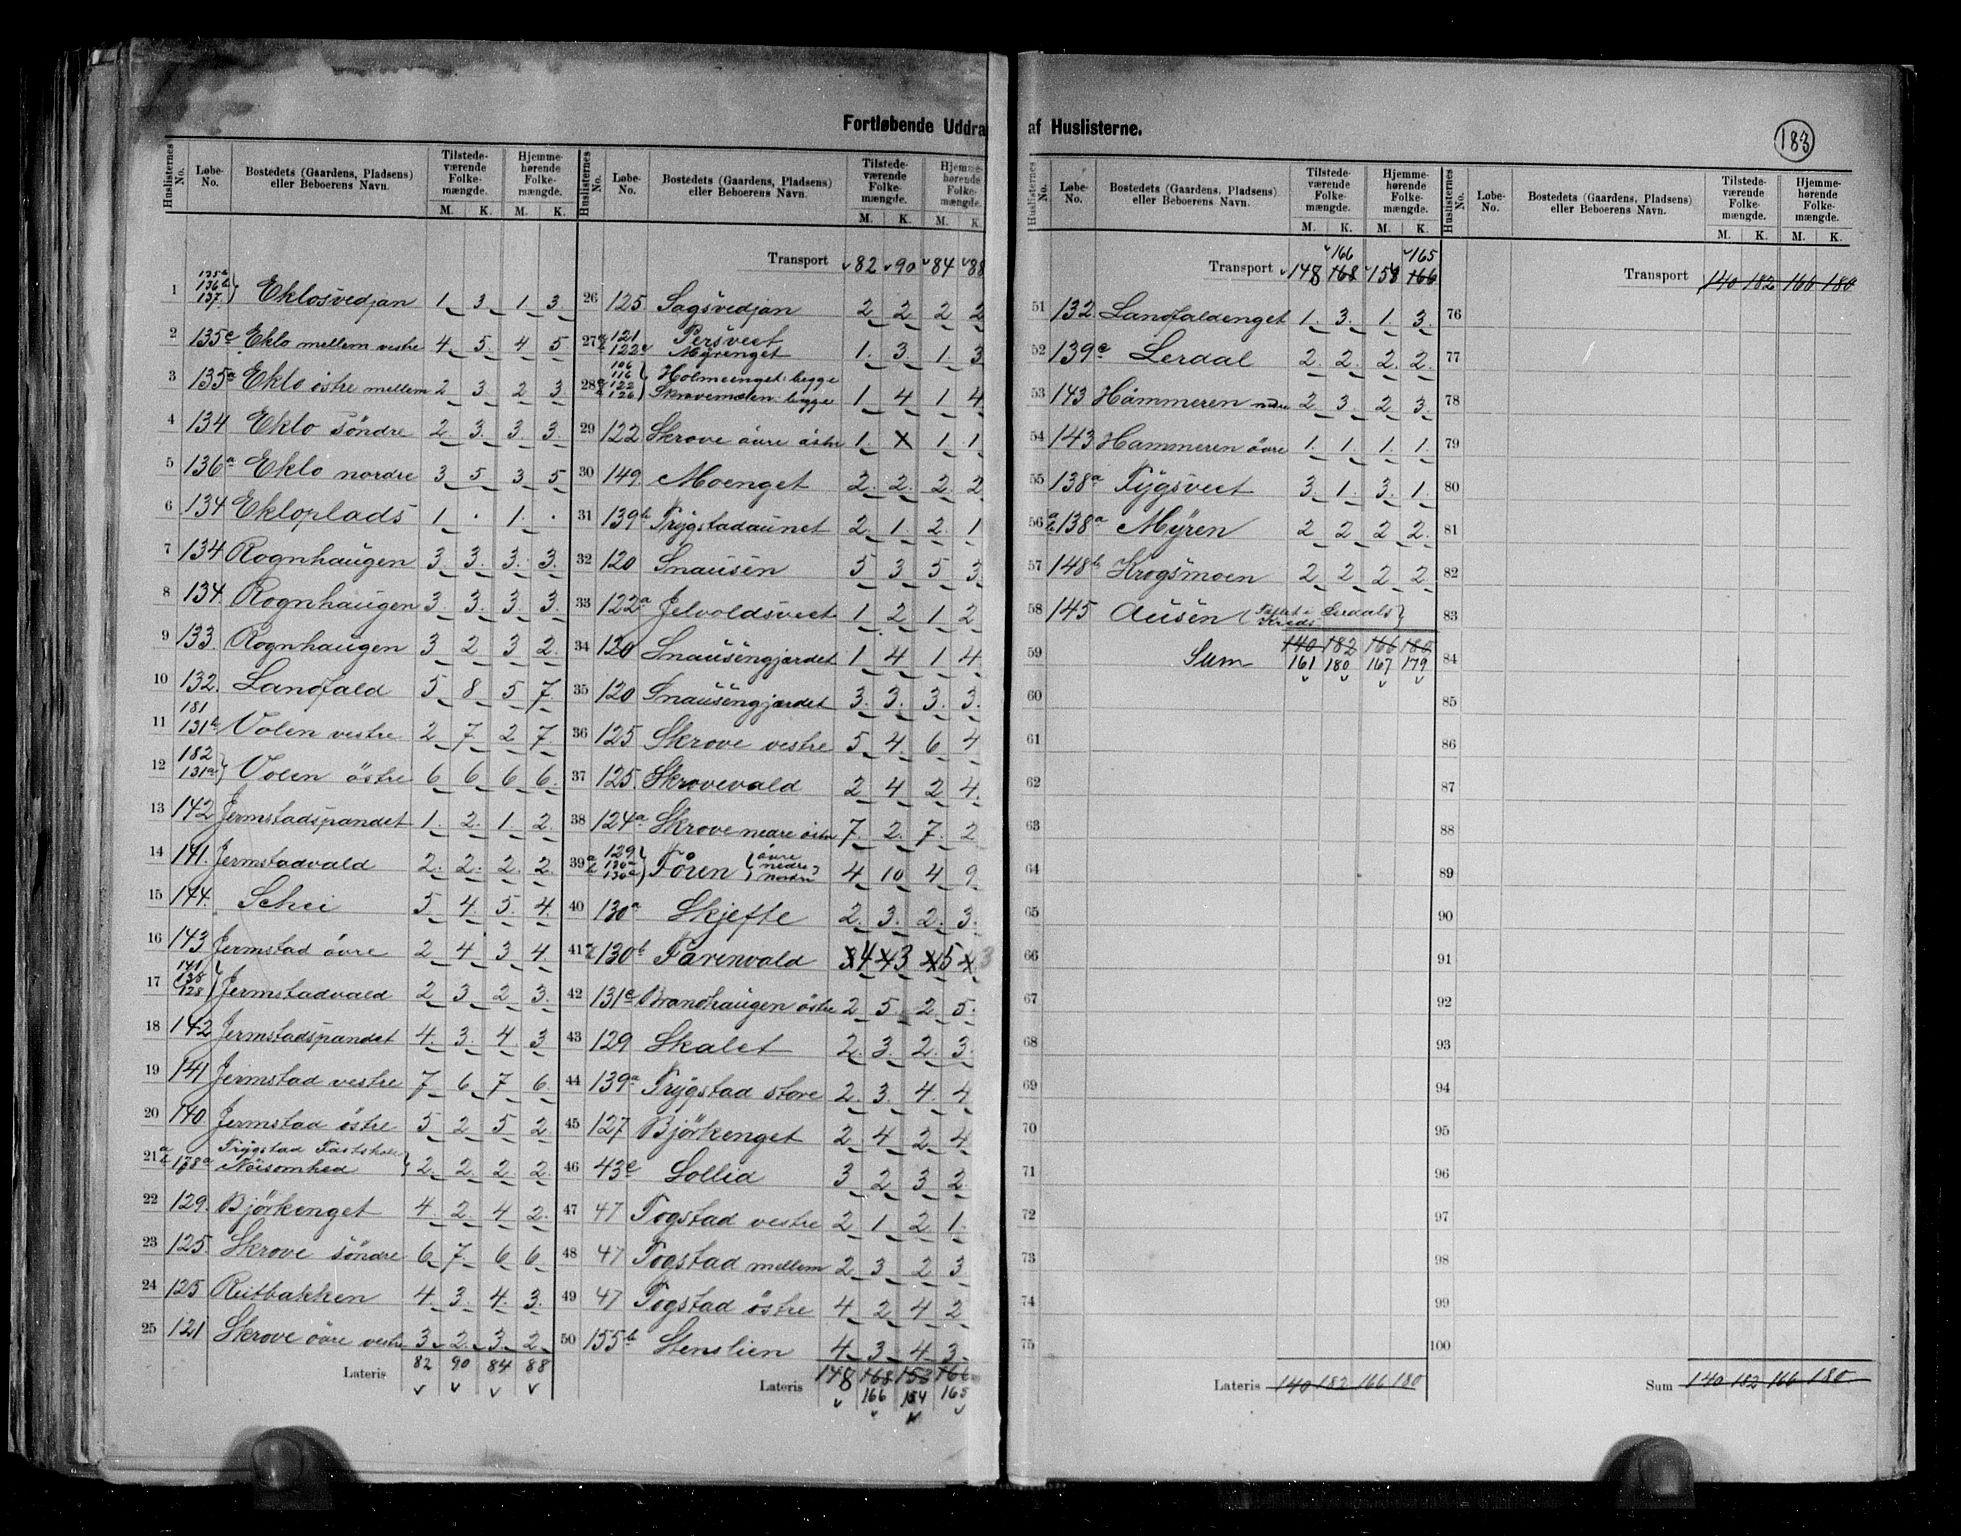 Fortløbende Uddrag af Huslisterne.
183
Huslisternes No. | Løbe-No. | Bostedets (Gaardens, Pladsens) eller Beboerens Navn. | Tilstede-værende Folke-mængde. M. K. | Hjemme-hørende Folke-mængde. M. K.
1 135b 136b 137 } Eklosvedjan 1 3 1 3
2 135c Eklo mellem vestre 4 5 4 5
3 135a Eklo östre mellem 2 3 2 3
4 134 Eklo söndre 2 3 3 3
5 136a Eklo nordre 3 5 3 5
6 134 Ekloplads 1 . 1 .
7 134 Rognhaugen 3 3 3 3
8 134 Rognhaugen 3 3 3 3
9 133 Rognhaugen 3 2 3 2
10 132 Landfald 5 8 5 7
11 181 131b Volen vestre 2 7 2 7
12 182 131a } Volen östre 6 6 6 6
13 142 Jermstadspandet 1 2 1 2
14 141 Jermstadvald 2 2 2 2
15 144 Schei 5 4 5 4
16 143 Jermstad övre 2 4 3 4
17 141 138 128 } Jermstadvald 2 3 2 3
18 142 Jermstadspandet 4 3 4 3
19 141 Jermstad vestre 7 6 7 6
20 140 Jermstad östre 5 2 5 2
21 a b 178a Trygstad Nöisomhed } 2 2 2 2
22 129 Björkenget 4 2 4 2
23 125 Skrove söndre 6 7 6 6
24 125 Ruibakken 4 3 4 3
25 121 Skrove övre vestre 3 2 3 2
Lateris 82 90 84 88
Huslisternes No. | Løbe-No. | Bostedets (Gaardens, Pladsens) eller Beboerens Navn. | Tilstede-værende Folke-mængde. M. K. | Hjemme-hørende Folke-mængde. M. K.
Transport 82 90 84 88
26 125 Sagsvedjan 2 2 2 2
27 a b 121 122c Persveet Myrenget 1 3 1 3
28 a b 106 116 122 126 } Holmeenget begge Skrovemoen begge 1 4 1 4
29 122 Skrove övre östre 1 x 1 1
30 149 Moenget 2 2 2 2
31 139b Trygstadaunet 2 1 2 1
32 120 Snausen 5 3 5 3
33 122a Jelvoldsveet 1 2 1 2
34 120 Snausengjerdet 1 4 1 4
35 120 Snausengjerdet 3 3 3 3
36 125 Skrove vestre 5 4 6 4
37 125 Skrovevald 2 4 2 4
38 124a Skrove nedre östre 7 2 7 2
39 a b 129 130a 130c } Fören { övre nedre nordre } 4 10 4 9
40 130a Skjefte 2 3 2 3
41 130b Farenvald 4 3 5 3
42 131c Brandhaugen östre 2 5 2 5
43 129 Skalet 2 3 2 3
44 139a Trygstad store 2 3 4 4
45 127 Björkenget 2 4 2 4
46 43c Sollid 3 2 3 2
47 47 Togstad vestre 2 1 2 1
48 47 Togstad mellem 2 3 2 3
49 47 Togstad östre 4 2 4 2
50 155b Stenslien 4 3 4 3
Lateris 148 168 153 166
166 154 165
Huslisternes No. | Løbe-No. | Bostedets (Gaardens, Pladsens) eller Beboerens Navn. | Tilstede-værende Folke-mængde. M. K. | Hjemme-hørende Folke-mængde. M. K.
166 165
Transport 148 168 158 166
51 132 Landfaldenget 1 3 1 3
52 139c Lerdal 2 2 2 2
53 143 Hammeren nedre 2 3 2 3
54 143 Hammeren övre 1 1 1 1
55 138a Tygsveet 3 1 3 1
56 a b 138a Myren 2 2 2 2
57 148b Krogsmoen 2 2 2 2
58 145 Ausen ( Lerdals Kreds )
59 140 182 166 180
Sum 161 180 167 179
60
61
62
63
64
65
66
67
68
69
70
71
72
73
74
75
Lateris 140 182 166 180
Huslisternes No. | Løbe-No. | Bostedets (Gaardens, Pladsens) eller Beboerens Navn. | Tilstede-værende Folke-mængde. M. K. | Hjemme-hørende Folke-mængde. M. K.
Transport 140 182 166 180
76
77
78
79
80
81
82
83
84
85
86
87
88
89
90
91
92
93
94
95
96
97
98
99
100
Sum 140 182 166 180